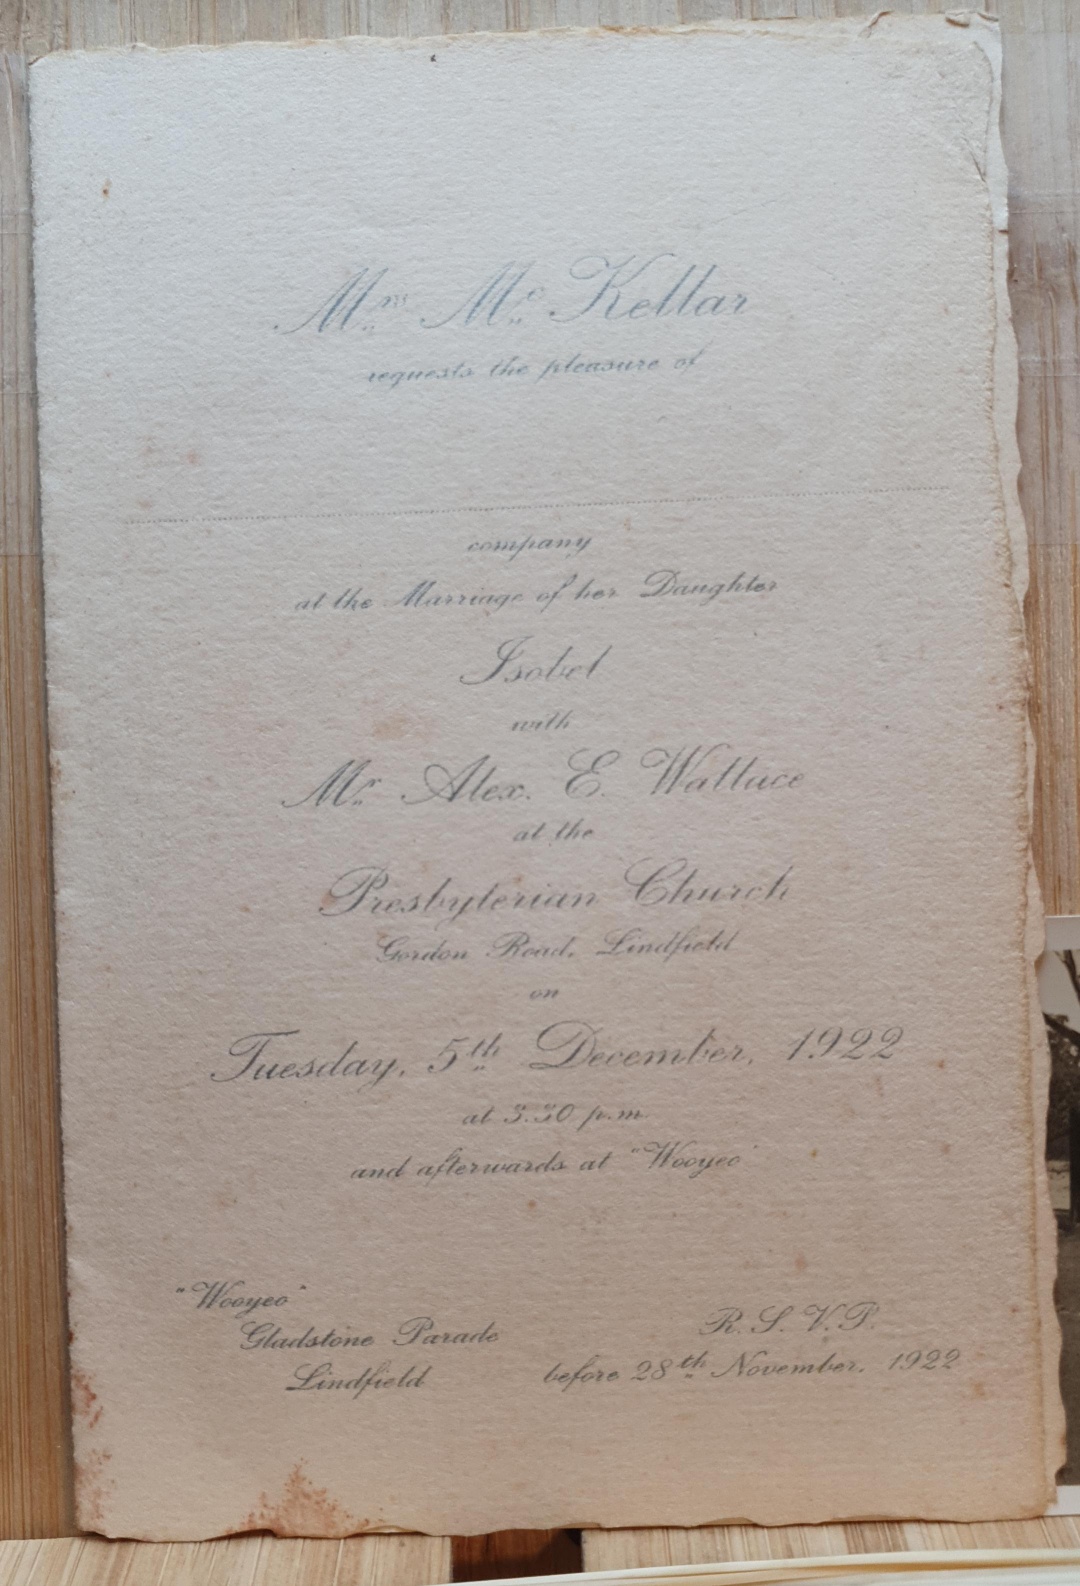 Mrs. Mc. Kellar
requests the pleasure of
company
at the Marriage of her Daughter
Isobel
with
Mr. Alex. E. Wallace
at the
Presbyterian Church
Gordon Road, Lindfield
on
Tuesday, 5th December, 1922
at 3.30 p.m.
and afterwards at "Wooyeo"
"Wooyeo"
Gladstone Parade
Lindfield
R.S.V.P.
before 28th November, 1922